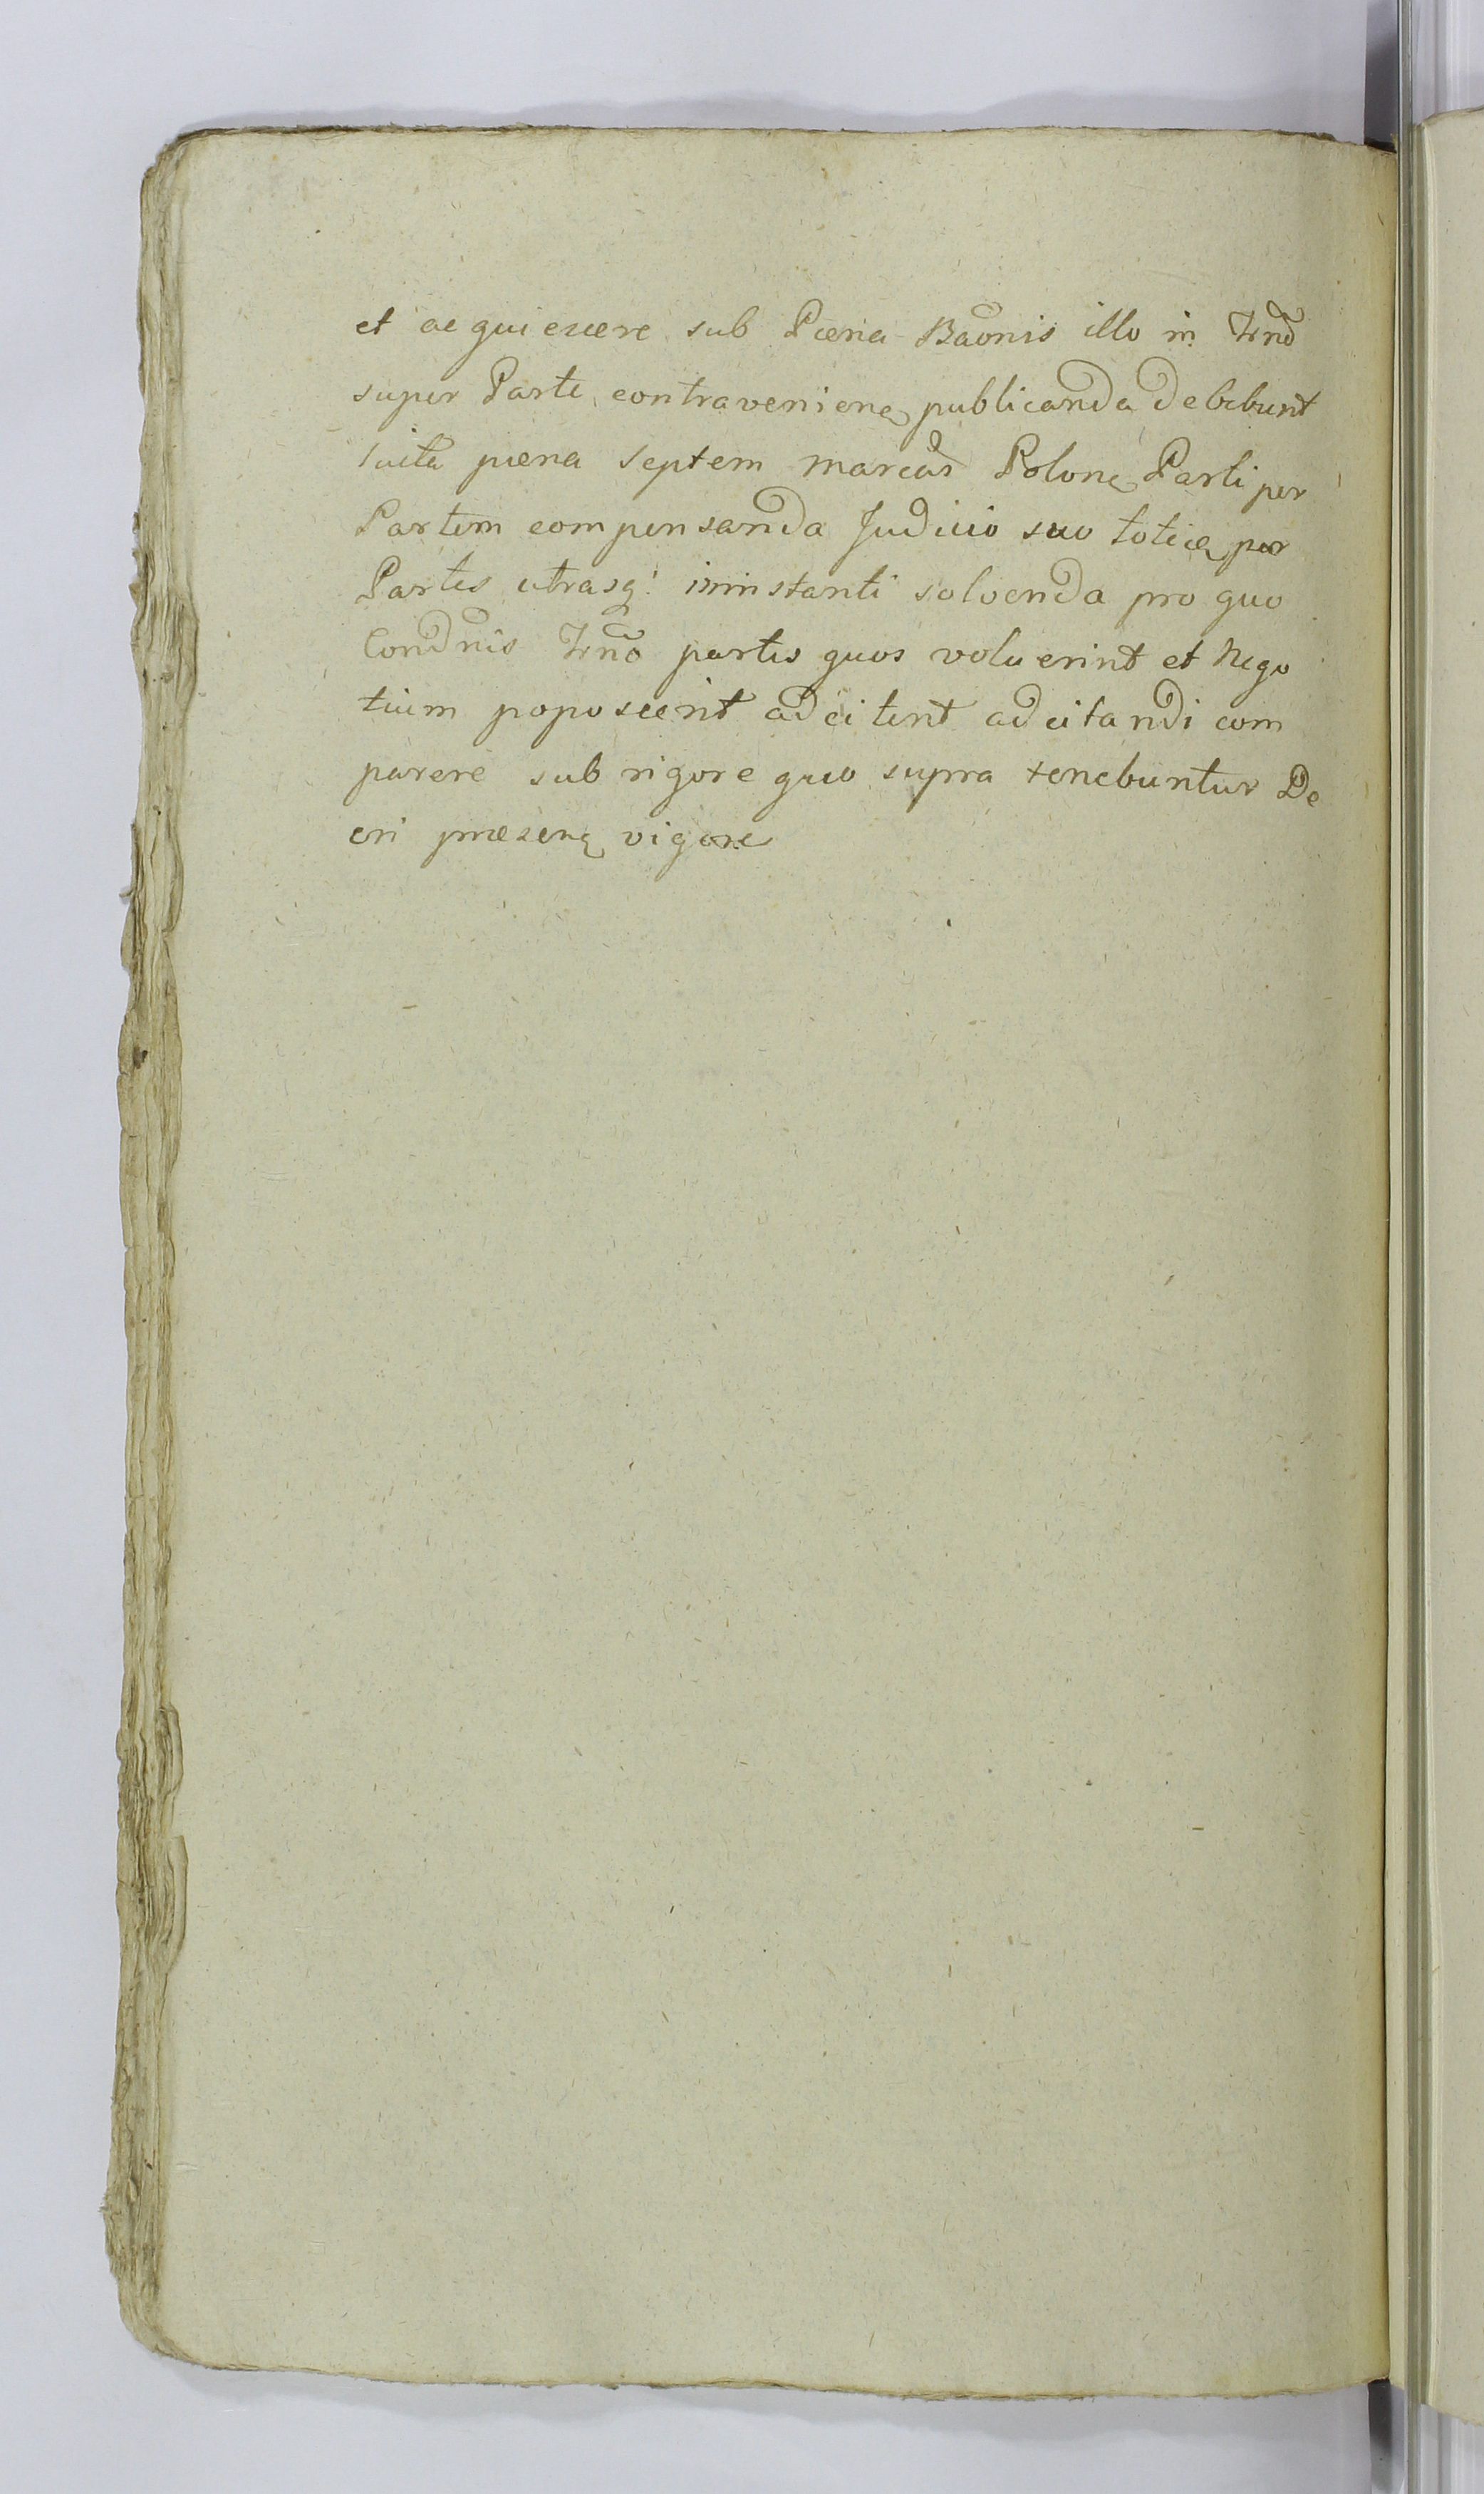 et acquiescere sub Pœna Bãonis illo in Trnõ
super Parte contravenienq publicanda debebunt
luita pœna septem marcar̃ Polonq Parti per
Partem compensanda Judicio suo totiq per
Partes utrasq: ininstanti solvenda pro quo
Condñis Trnõ partes quos voluerint et Nego
tium poposcerit adcitent adcitandi com
parere sub rigore quo supra tenebuntur De
cri præsenq vigore